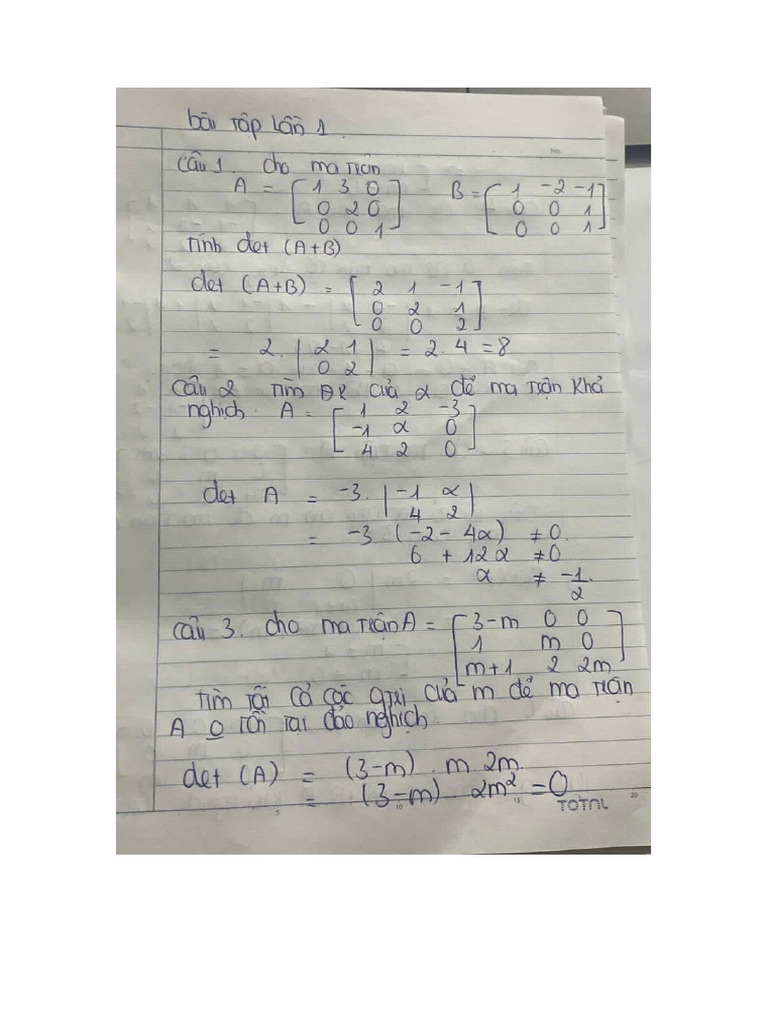 bài tập lần 1.
No.
Câu 1. Cho ma trận
A = [1 3 0; 0 2 0; 0 0 1] B = [1 -2 -1; 0 0 1; 0 0 1]
Tính det (A+B)
det (A+B) = [2 1 -1; 0 2 1; 0 0 2]
= 2. |2 1; 0 2| = 2.4 = 8
Câu 2 Tìm ĐK của α để ma trận khả
nghịch. A = [1 2 -3; -1 α 0; 4 2 0]
det A = -3. |-1 α; 4 2|
= -3 (-2 - 4α) ≠ 0.
6 + 12α ≠ 0
α ≠ -1/2.
Câu 3. Cho ma trận A = [3-m 0 0; 1 m 0; m+1 2 2m]
Tìm tất cả các gtrị của m để ma trận
A 0 tồn tại đảo nghịch
det (A) = (3-m) . m 2m.
= (3-m) 2m² = 0
5 10 15 TOTAL 20